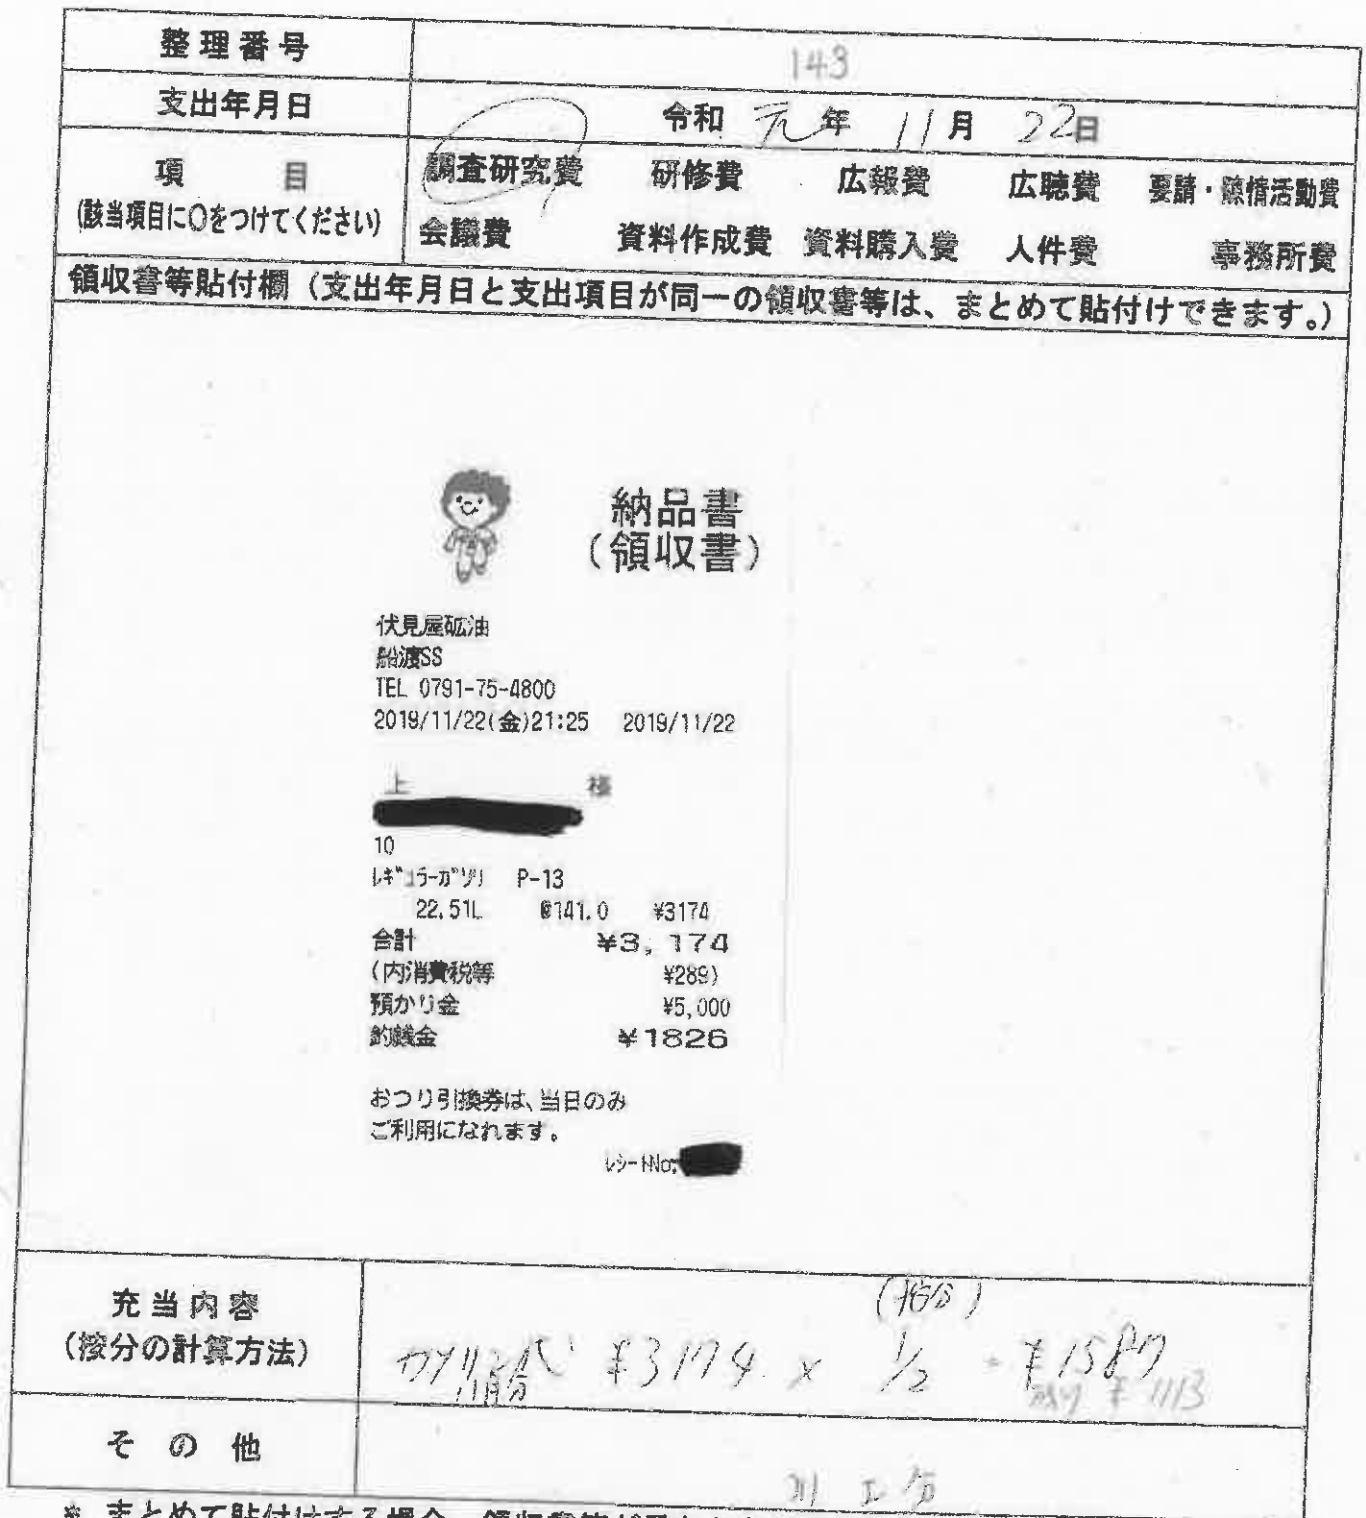 整理番号 143
支出年月日 令和 元 年 11 月 22 日
項目 調査研究費 研修費 広報費 広聴費 要請・陳情活動費
(該当項目に〇をつけてください) 会議費 資料作成費 資料購入費 人件費 事務所費
領収書等貼付欄（支出年月日と支出項目が同一の領収書等は、まとめて貼付けできます。）
納品書
（領収書）
伏見屋砿油
船渡SS
TEL 0791-75-4800
2019/11/22(金)21:25 2019/11/22
上 様
10
ﾚｷﾞｭﾗｰｶﾞｿﾘﾝ P-13
22.51L @141.0 ¥3174
合計 ¥3,174
(内消費税等 ¥289)
預かり金 ¥5,000
釣銭金 ¥1826
おつり引換券は、当日のみ
ご利用になれます。
ﾚｼｰﾄNo.
充当内容 (按分)
(按分の計算方法) ガソリン代 ¥3174 × 1/2 = ¥1587
11月分 残り ¥1113
その他
※ まとめて貼付けする場合、領収書等が